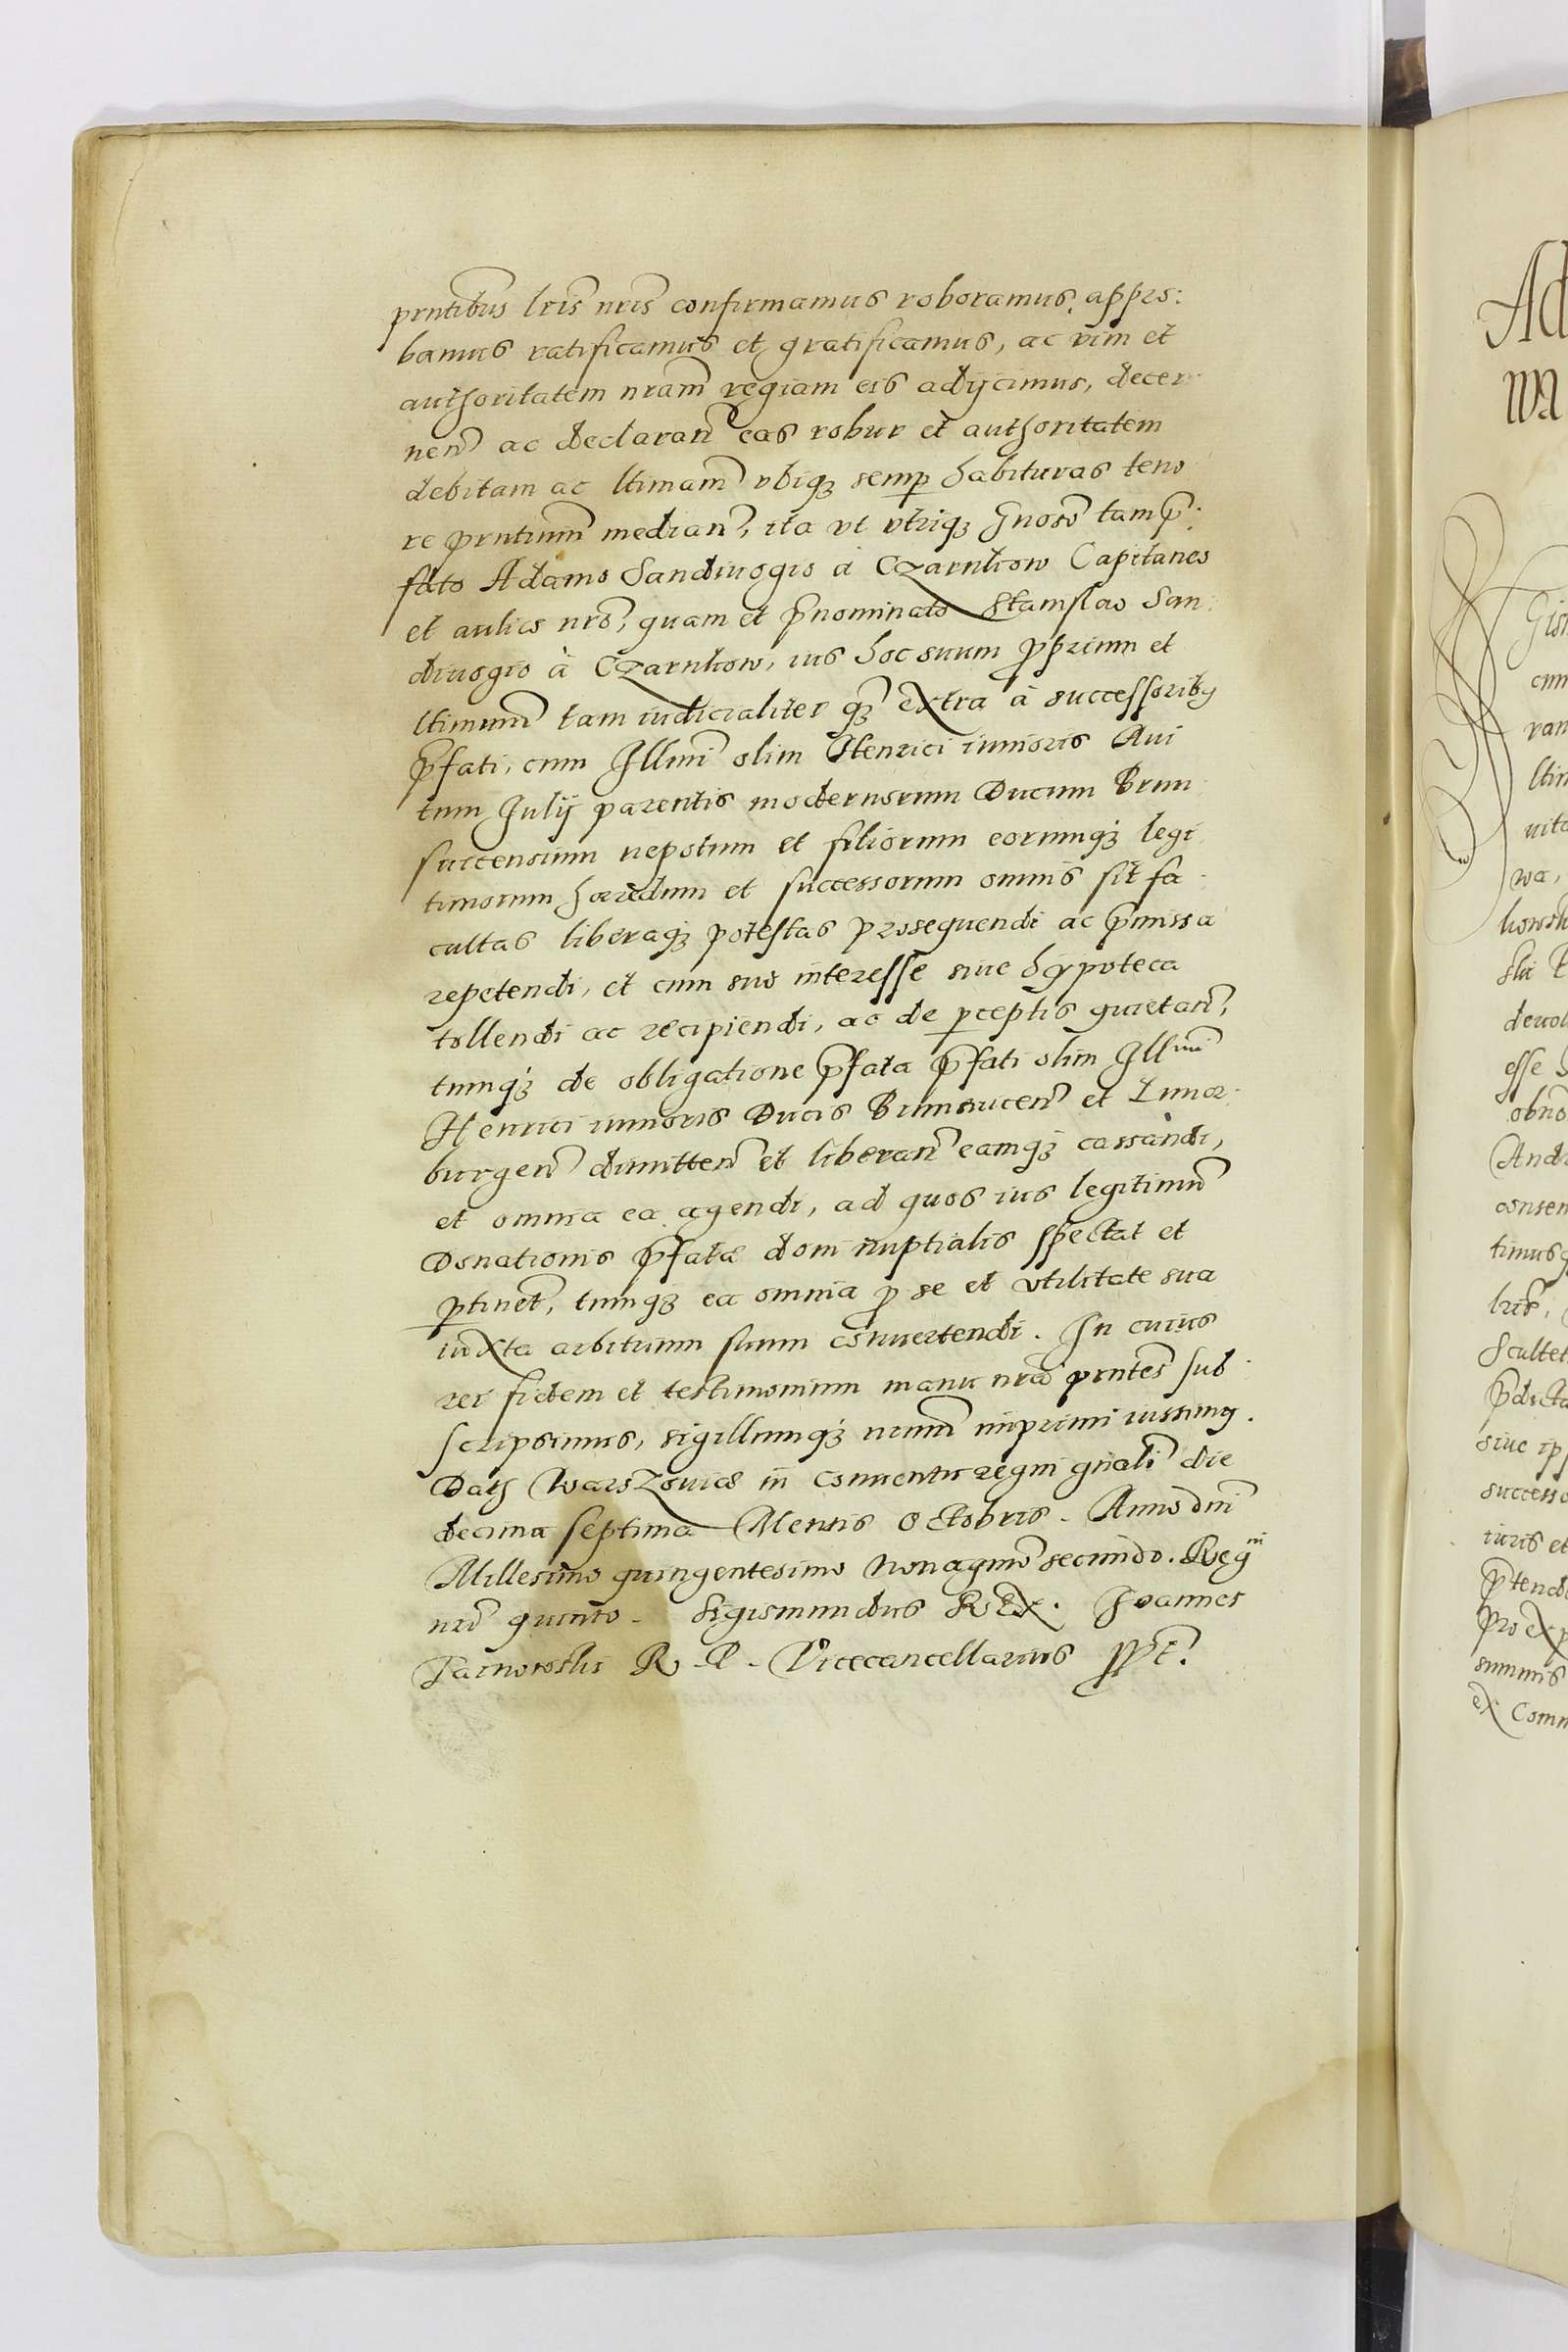 prntibus lris nris confirmamus roboramus, appro:
bamus ratificamus et gratificamus, ac vim et
authoritatem nram regiam eis adijcimus, decer
nen ac declaran eas robur et authoritatem
debitam ac ltimam vbiq semp habituras teno
re prntium median, ita vt vtriq Gnoso tam p:
fato Adamo Sandiuogio à Czarnkow Capitaneo
et aulico nro, quam et pnominato Stanislao San:
diuogio à Czarnkow, ius hoc suum pprium et
ltimum tam iudicialiter q extra à successorib9
pfati, cum Illmi olim Henrici iunioris Aui
tum Julij parentis modernorum Ducum Brun
suicensium nepotum et filiorum eorumq legi
timorum hæredum et successorum omnis sit fa:
cultas liberaq potestas prosequendi ac pmissa
repetendi, et cum suo interesse siue hypoteca
tollendi ac recipiendi, ac de pceptis quietan,
tumq de obligatione pfata pfati olim Illmi
Henrici iunioris Ducis Brunsuicen et Lunæ:
burgen dimitten et liberan eamq cassandi,
et omnia ea agendi, ad quos ius legitimum
Donationis pfatæ doni nuptialis spectat et
ptinet, tumq ea omnia p se et vtilitate sua
iuxta arbitrium suum conuertendi. In cuius
rei fidem et testimonium manu nra prntes sub:
scripsimus, sigillumq nrum imprimi iussim9.
Dat Warszouiæ in conuentu regni gnali die
decima septima Mensis Octobris. Anno dni
Millesimo quingentesimo Nonagmo secundo. Regni
nri quinto. Sigismundus REX. Joannes
Tarnowski R. P. Vicecancellarius ppt.

Ad
wa
Gis
cum
ran
ltim
uita
wa,
kowsk
ski
deuol
esse
obno
Andr
consen
timusq
lris,
Scultet
pdicta
siue ip
successo
iuris et
ptende
pro exp
summis
ex Comm